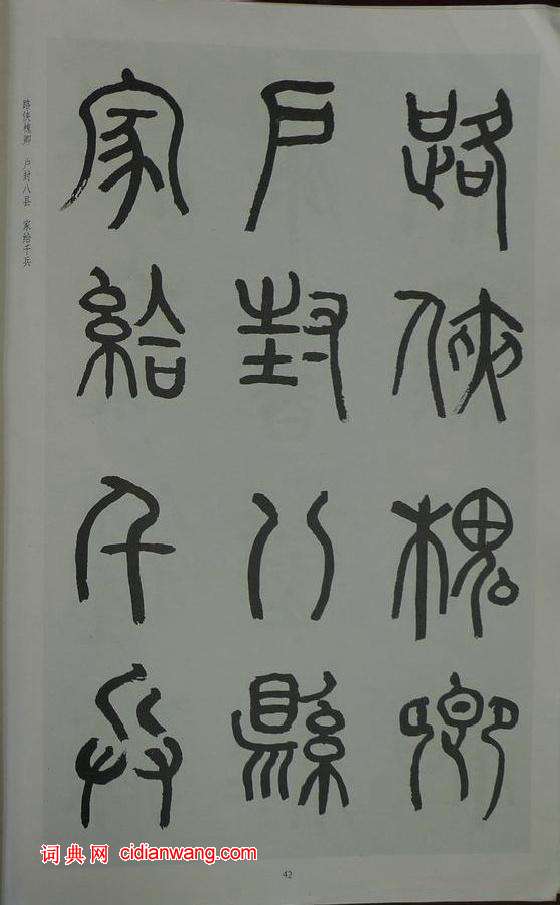 路俠槐卿
戶封八縣
家給千兵
路侠槐卿 户封八县 家给千兵
词典网 cidianwang.com
42